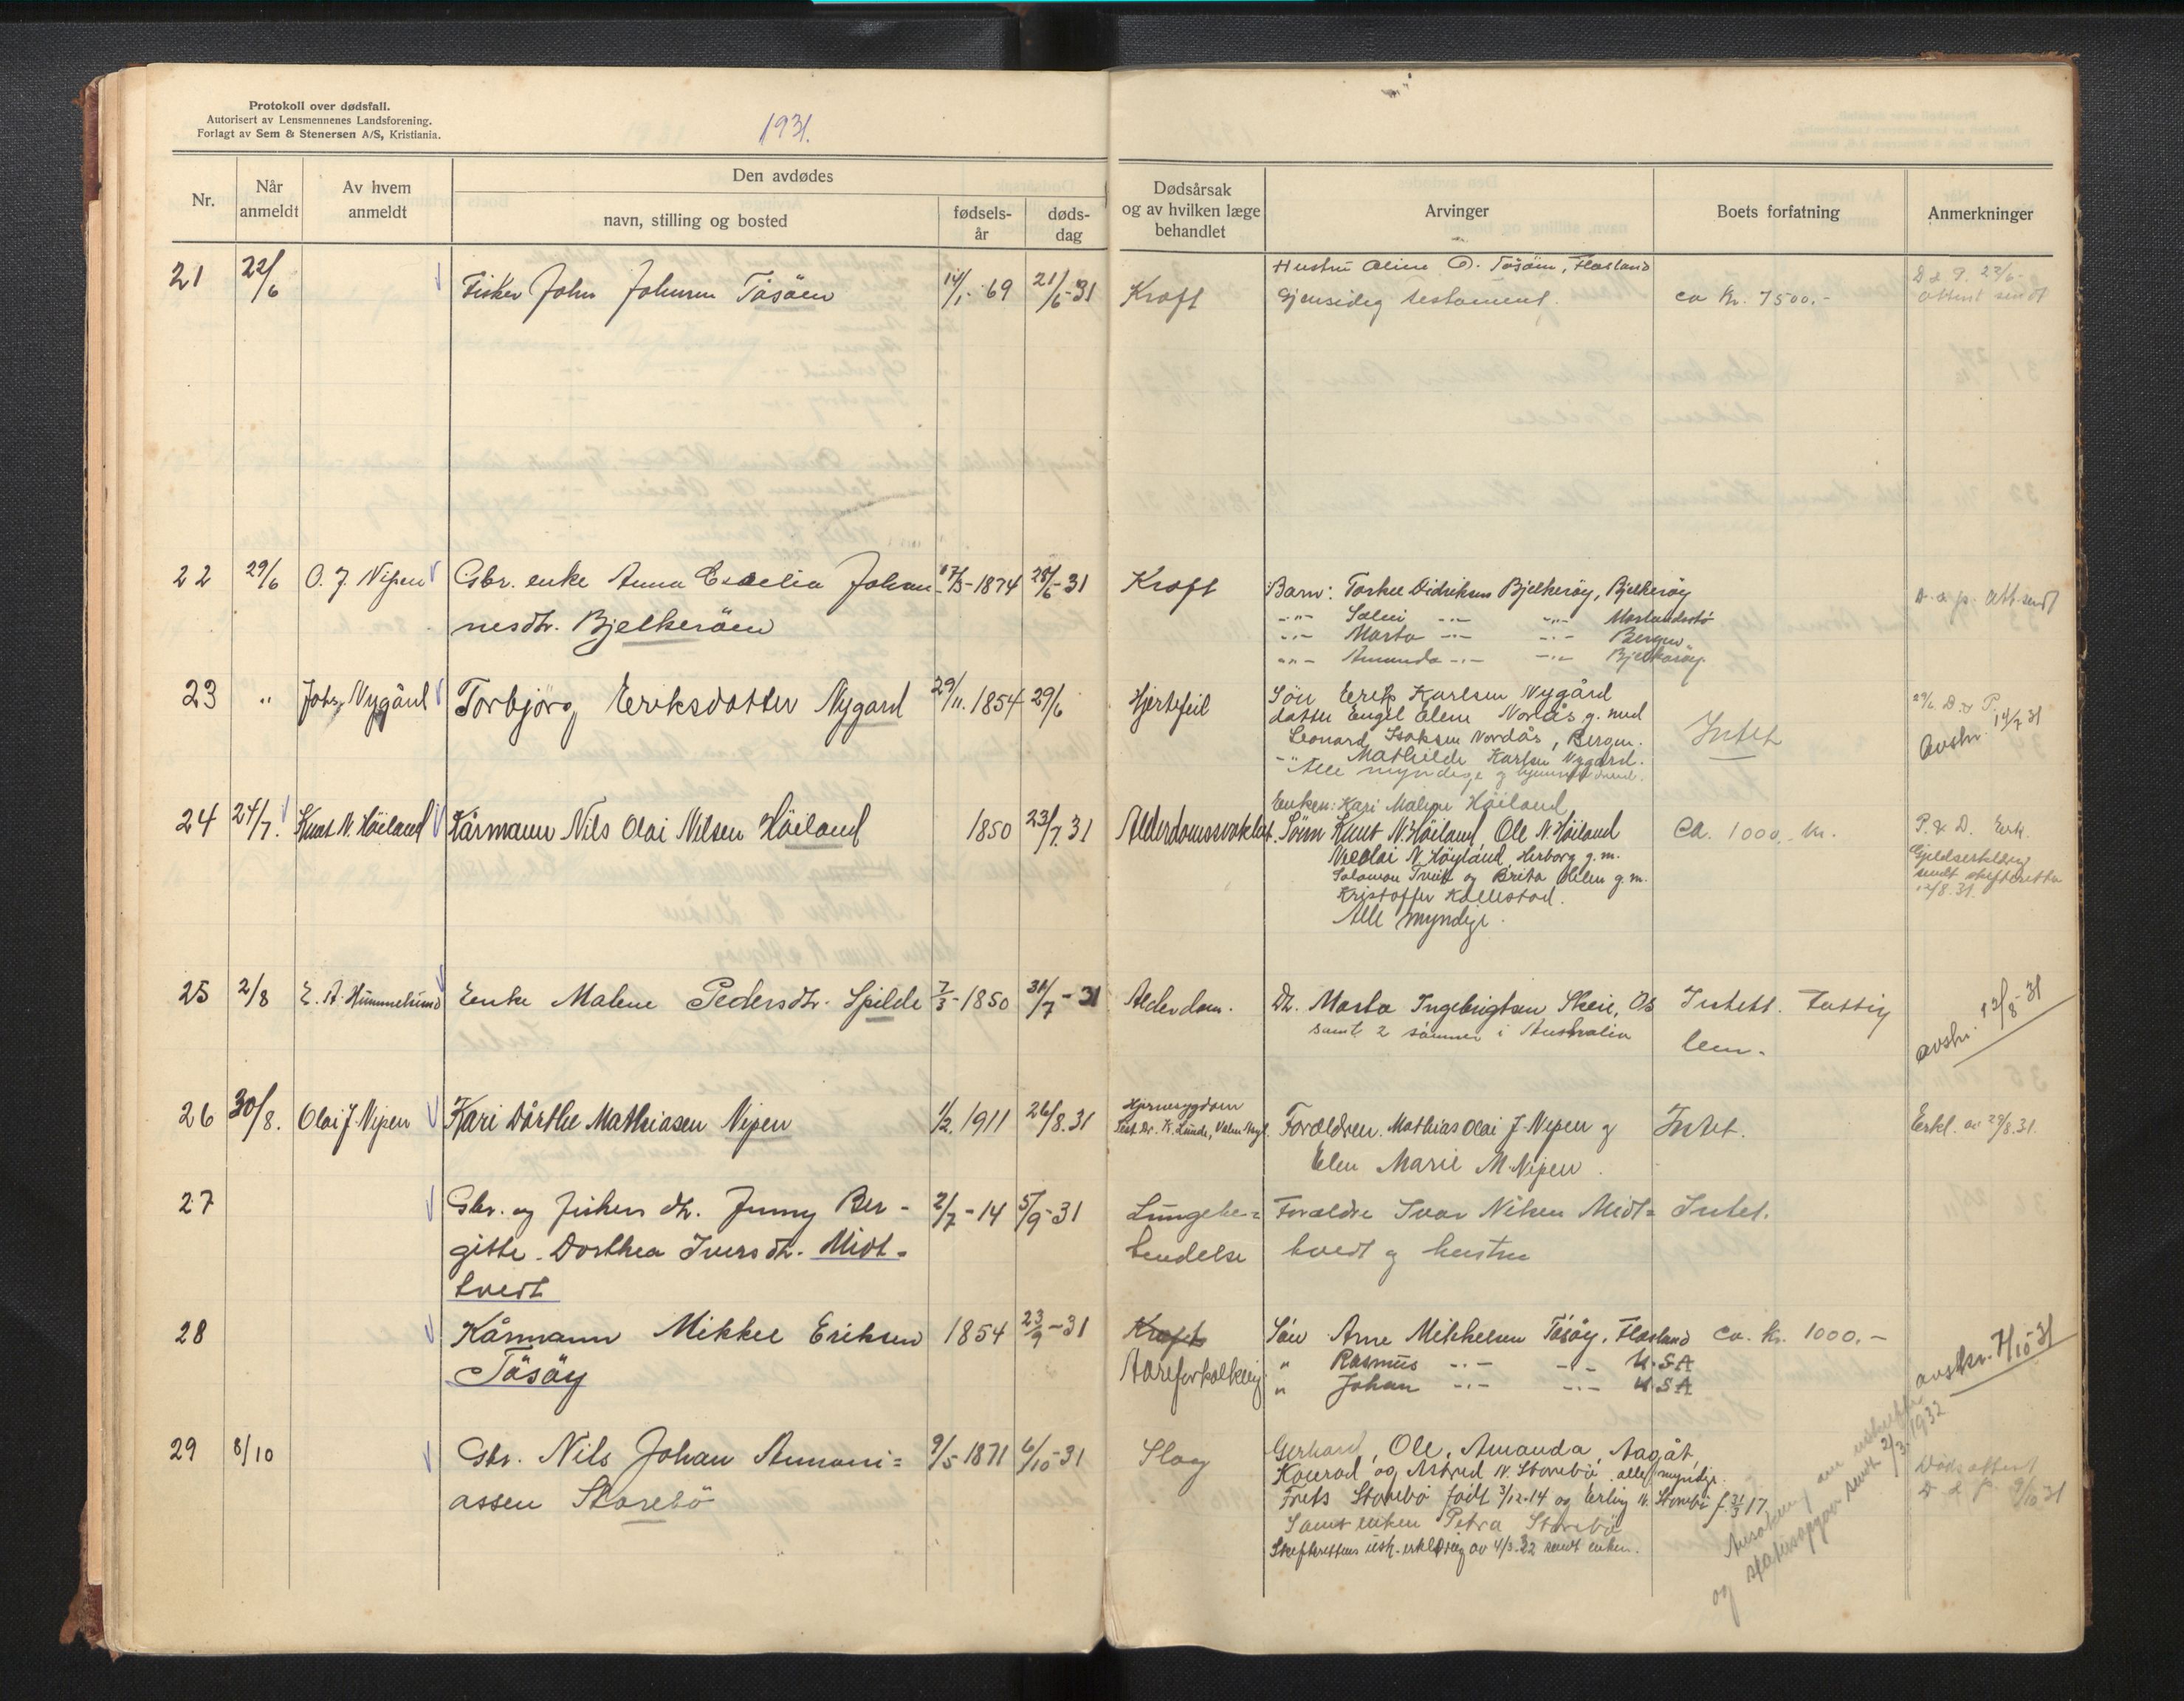 Protokoll over dødsfall.
Autorisert av Lensmennenes Landsforening.
Forlagt av Sem & Stenersen A/S, Kristiania.
1931.
Nr.
Når anmeldt
Av hvem anmeldt
Den avdødes
navn, stilling og bosted
fødsels-år
døds-dag
Dødsårsak og av hvilken læge behandlet
Arvinger
Boets forfatning
Anmerkninger
21 22/6 Fisker John Johnsen Täsöen 14/1-69 21/6-31 Kræft
Hustru Oline O. Täsöen, Flesland
Gjensidig testament.
ca kr. 7500.-
D & P. 23/6-
attest sendt
22 29/6 O. J. Nipen Gbr. enke Anna Johan-
nesdtr. Bjelkeröen
1874 28/6-31 Kræft
Barn: Torkel Didriksen Bjelkeröy, Bjelkeröy
-"- Salmi -"- -"- Marlandstö
-"- Marta -"- -"- Bergen
-"- Amanda -"- -"- Bjelkeröy.
D. o p. Att. sendt
23 " Johs. Nygård Torbjörg Eriksdatter Nygard 29/11. 1854 29/6 Hjertefeil
Sön Erik Karlsen Nygård
datter Engel Elene Nordås g. med
Leonard Isaksen Nordås, Bergen.
-"- Mathilde Karlsen Nygård.
Alle myndige og
Intet
29/6. D. & P.
Avskr. 14/7 31
24 24/7. Knut N. Höiland Kårmann Nils Olai Nilsen Höiland 1850 23/7.31 Alderdomssvakhet
Enken: Kari Malene Höiland
Sönn Knut N. Höiland, Ole N. Höiland
Nicolai N. Höyland, Herborg g. m.
Salomon Tveit og Brita Helen g. m.
Kristoffer Kallestad.
Alle myndige.
Ca. 1000 kr.
P. & D. Erk.
Gjeldserklæring
sendt skifteretten
12/8.31.
25 2/8 E. A. Hummelsund Enke Malene Pedersdtr. Spilde 7/3-1850 31/7-31 Alderdom.
Dt. Marta Ingebrigtsen Skeie, Os
samt 2 sönner i Australia
Intett. Fattig
lem.
avskr. 12/8-31
26 30/8. Olai J Nipen Kari Dårthe Mathiasen Nipen 1/2. 1911 26/8.31
Hjernesygdom
Test. Dr. K. Lunde,
Forældren. Mathias Olai J. Nipen og
Elen Marie M. Nipen.
Intet.
Erkl. av 29/8.31.
27 Gbr. og fiskers dt. Jenny Ber-
gitte Dorthea Iversdtr. Midt-
tvedt
2/7-14 5/9-31
Lungebe=
tendelse
Forældre Ivar Nilsen Midt=
tvedt og hustru
Intet.
28 Kårmann Mikkel Eriksen
Täsöy
1854 23/9-31
Kræft
Aareforkalkning
Sön Arne Mikkelsen Täsöy, Flesland
" Rasmus -"- -"- U.S.A
" Johan -"- -"- U.S.A
ca. kr. 1000.-
avskr. 7/10-31
29 8/10 Gbr. Nils Johan Annani=
assen Storebö
9/5-1871 6/10-31 Slag
Gerhard, Ole, Amanda, Aagåt,
Konrad og Astrid N. Storebö alle myndige.
Frets Storebö född 3/12-14 og Erling N. Storebö f. 31/3 17
Samt enken Petra Storebö
Skifterettens usk. erklæring av 4/3-32 sendt enken.
Ansøkning om uskiftet
og statusopgave sendt 2/3. 1932
Dödsattest
D & P 9/10 31